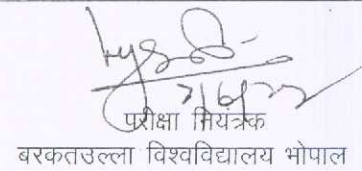 परीक्षा नियंत्रक
बरकतउल्ला विश्वविद्यालय भोपाल